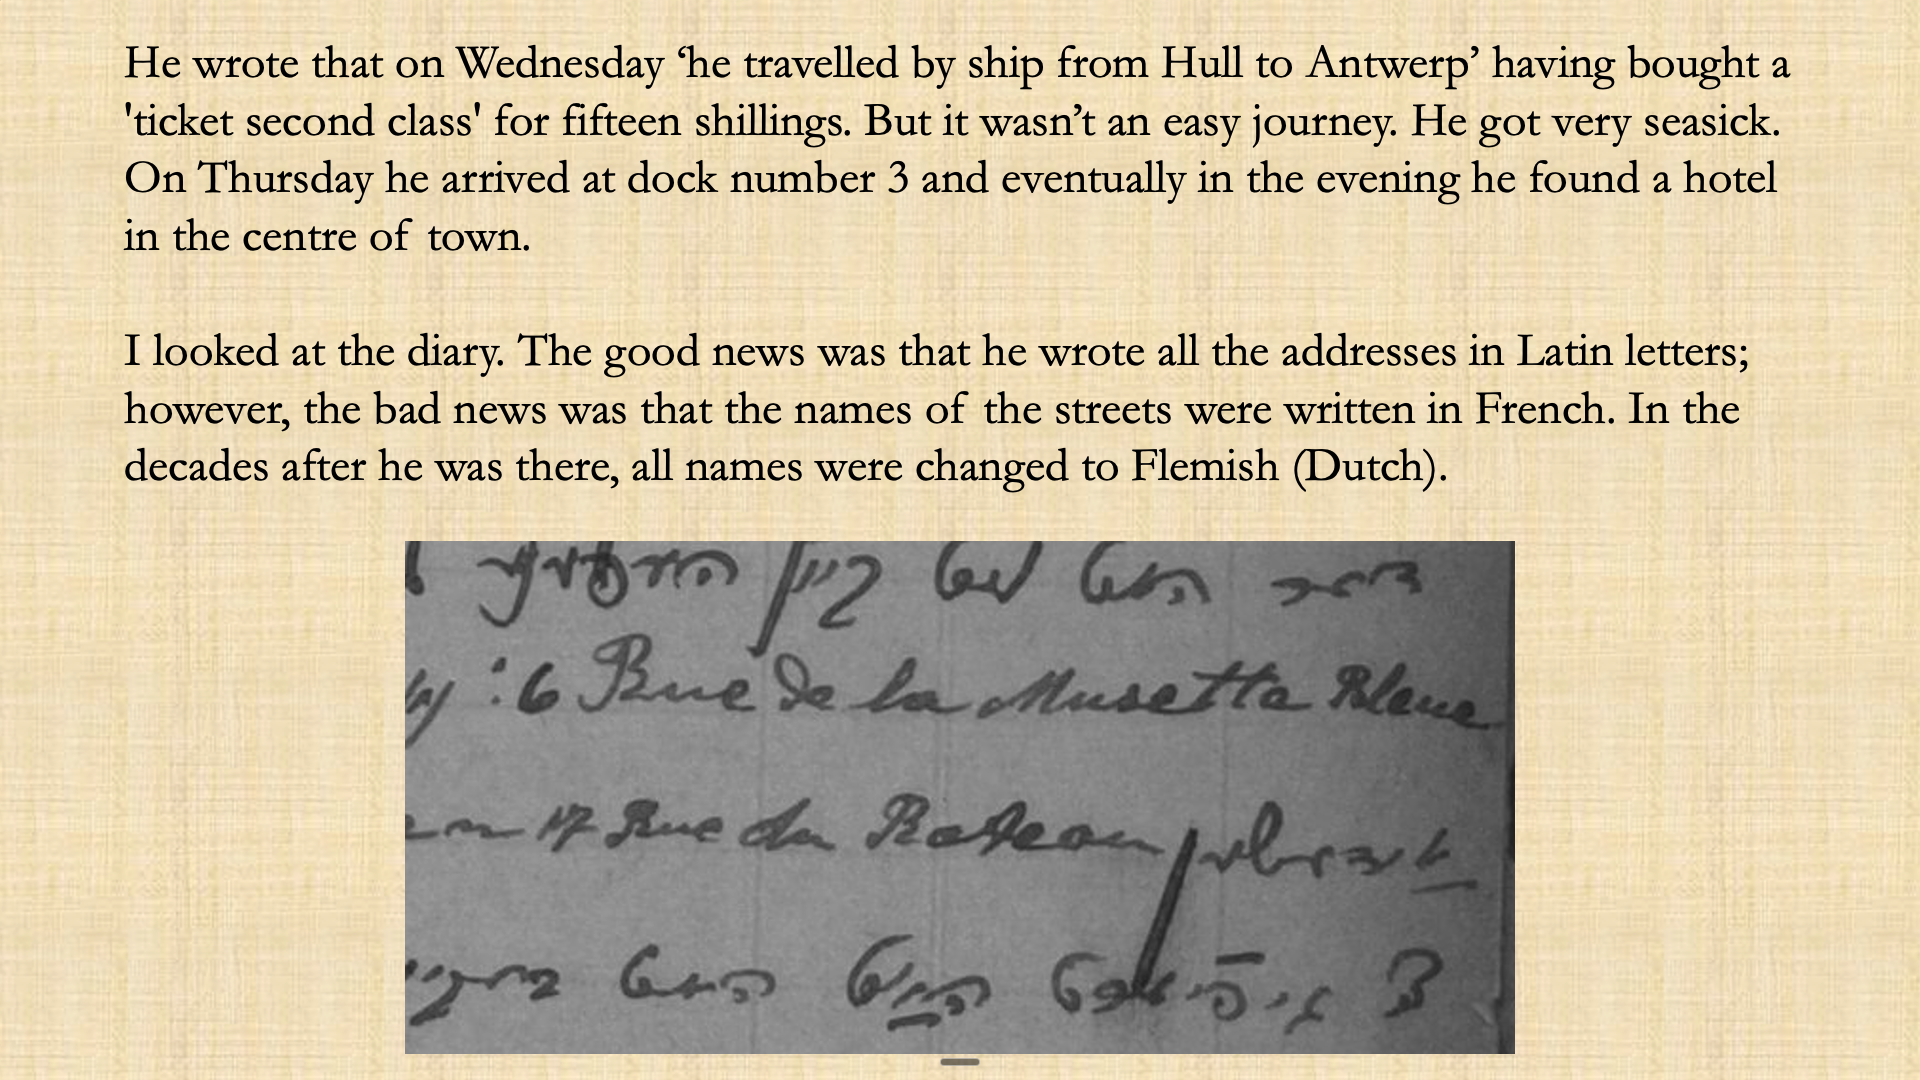 He wrote that on Wednesday ‘he travelled by ship from Hull to Antwerp’ having bought a
'ticket second class' for fifteen shillings. But it wasn’t an easy journey. He got very seasick.
On Thursday he arrived at dock number 3 and eventually in the evening he found a hotel
in the centre of town.
I looked at the diary. The good news was that he wrote all the addresses in Latin letters;
however, the bad news was that the names of the streets were written in French. In the
decades after he was there, all names were changed to Flemish (Dutch).
האט קיין
: 6 Rue de la Musetta Bleue
17 Rue du Rateau
האט היינט